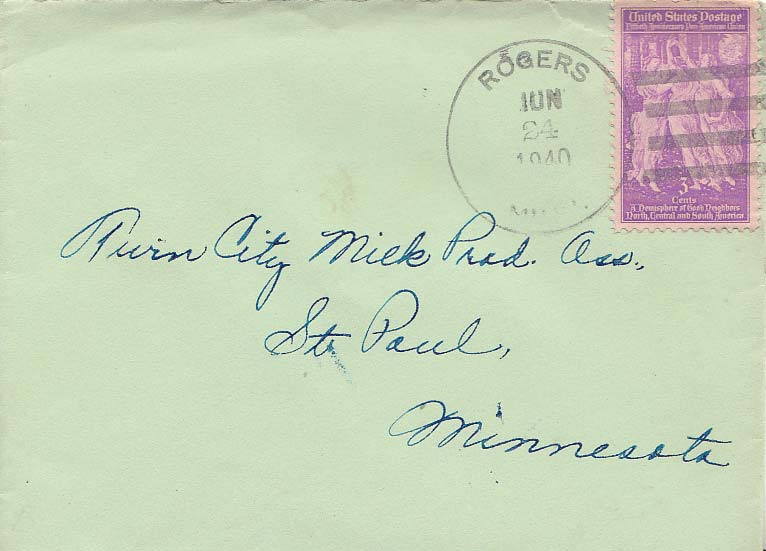 United States Postage
Fiftieth Anniversary Pan-American Union
ROGERS
JUN
24
1940
3
Cents
A Hemisphere of Good Neighbors
North, Central and South America
Twin City Milk Prod. Ass.,
St. Paul,
Minnesota